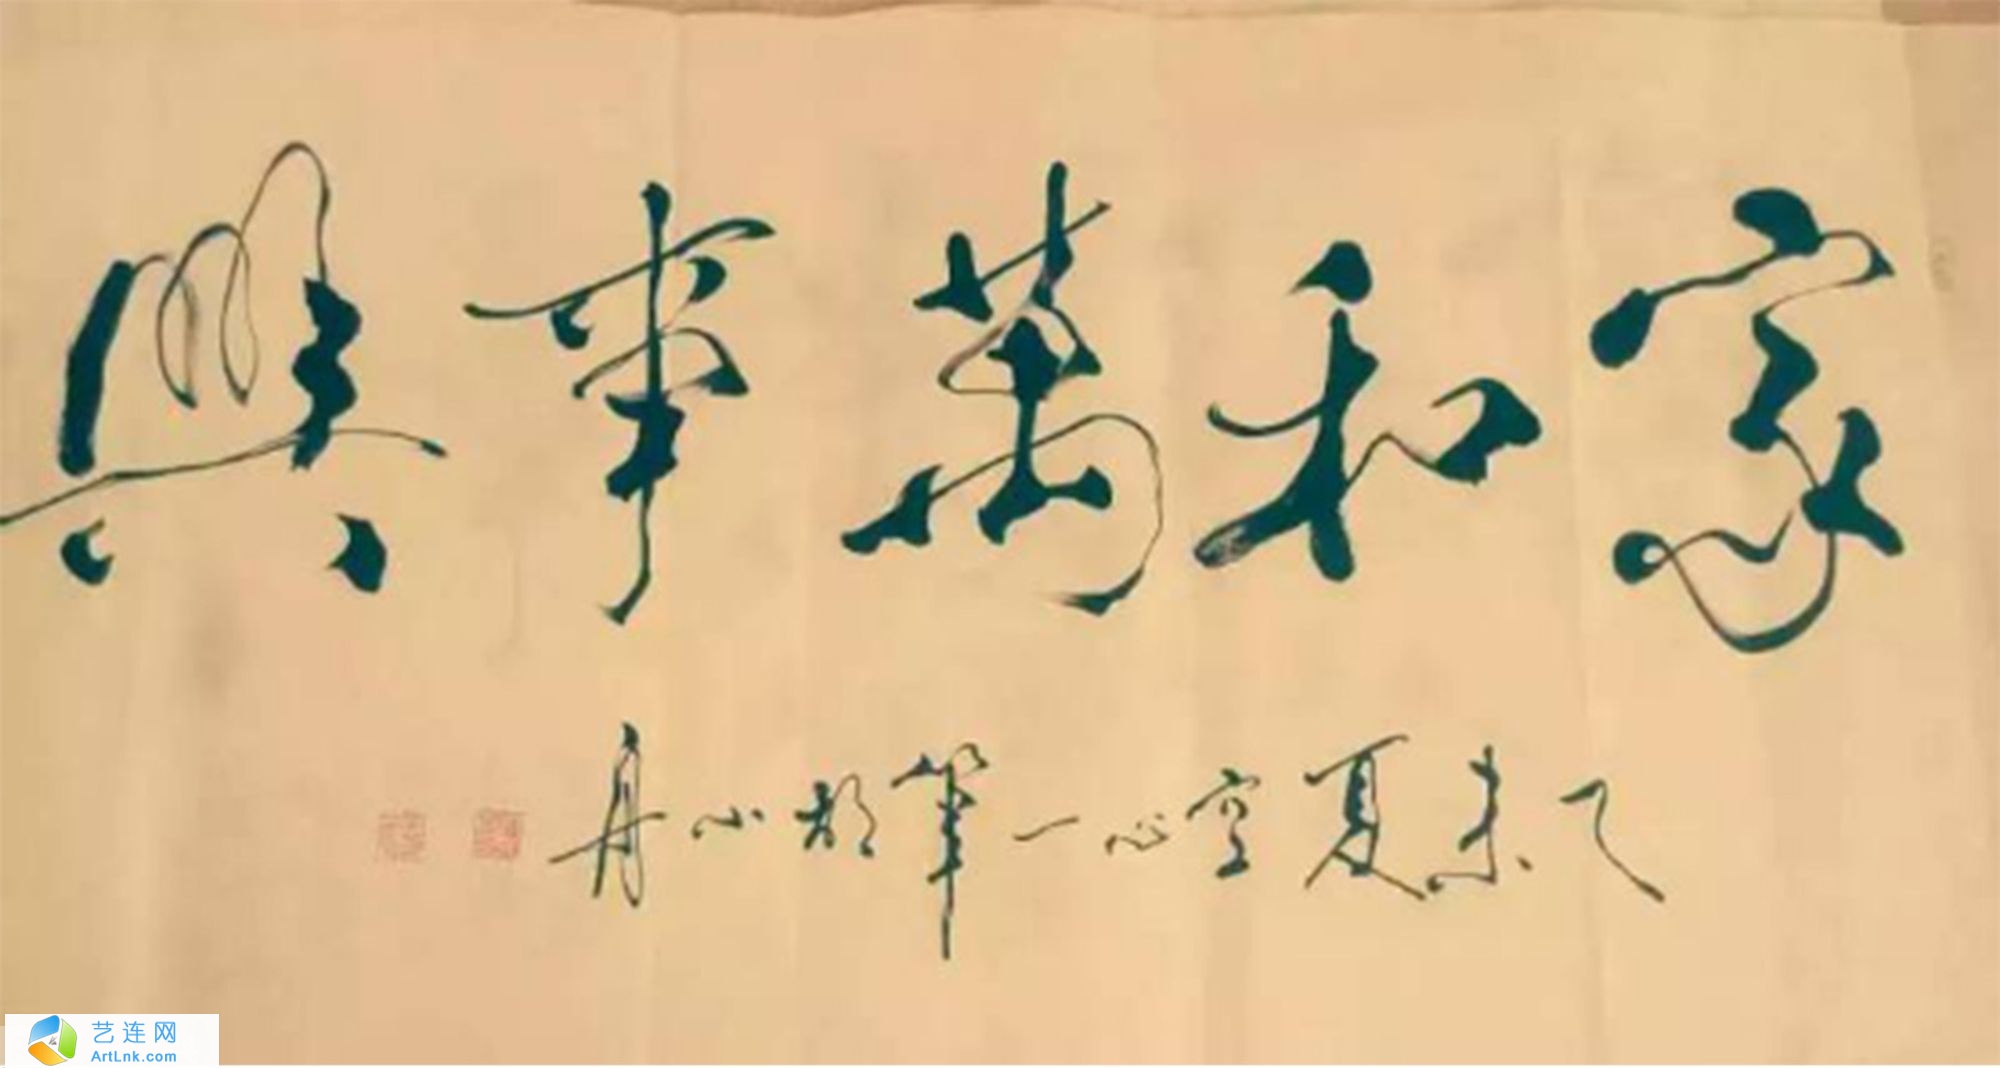 家和萬事興
乙未夏空心一筆胡小舟
艺连网
ArtLnk.com